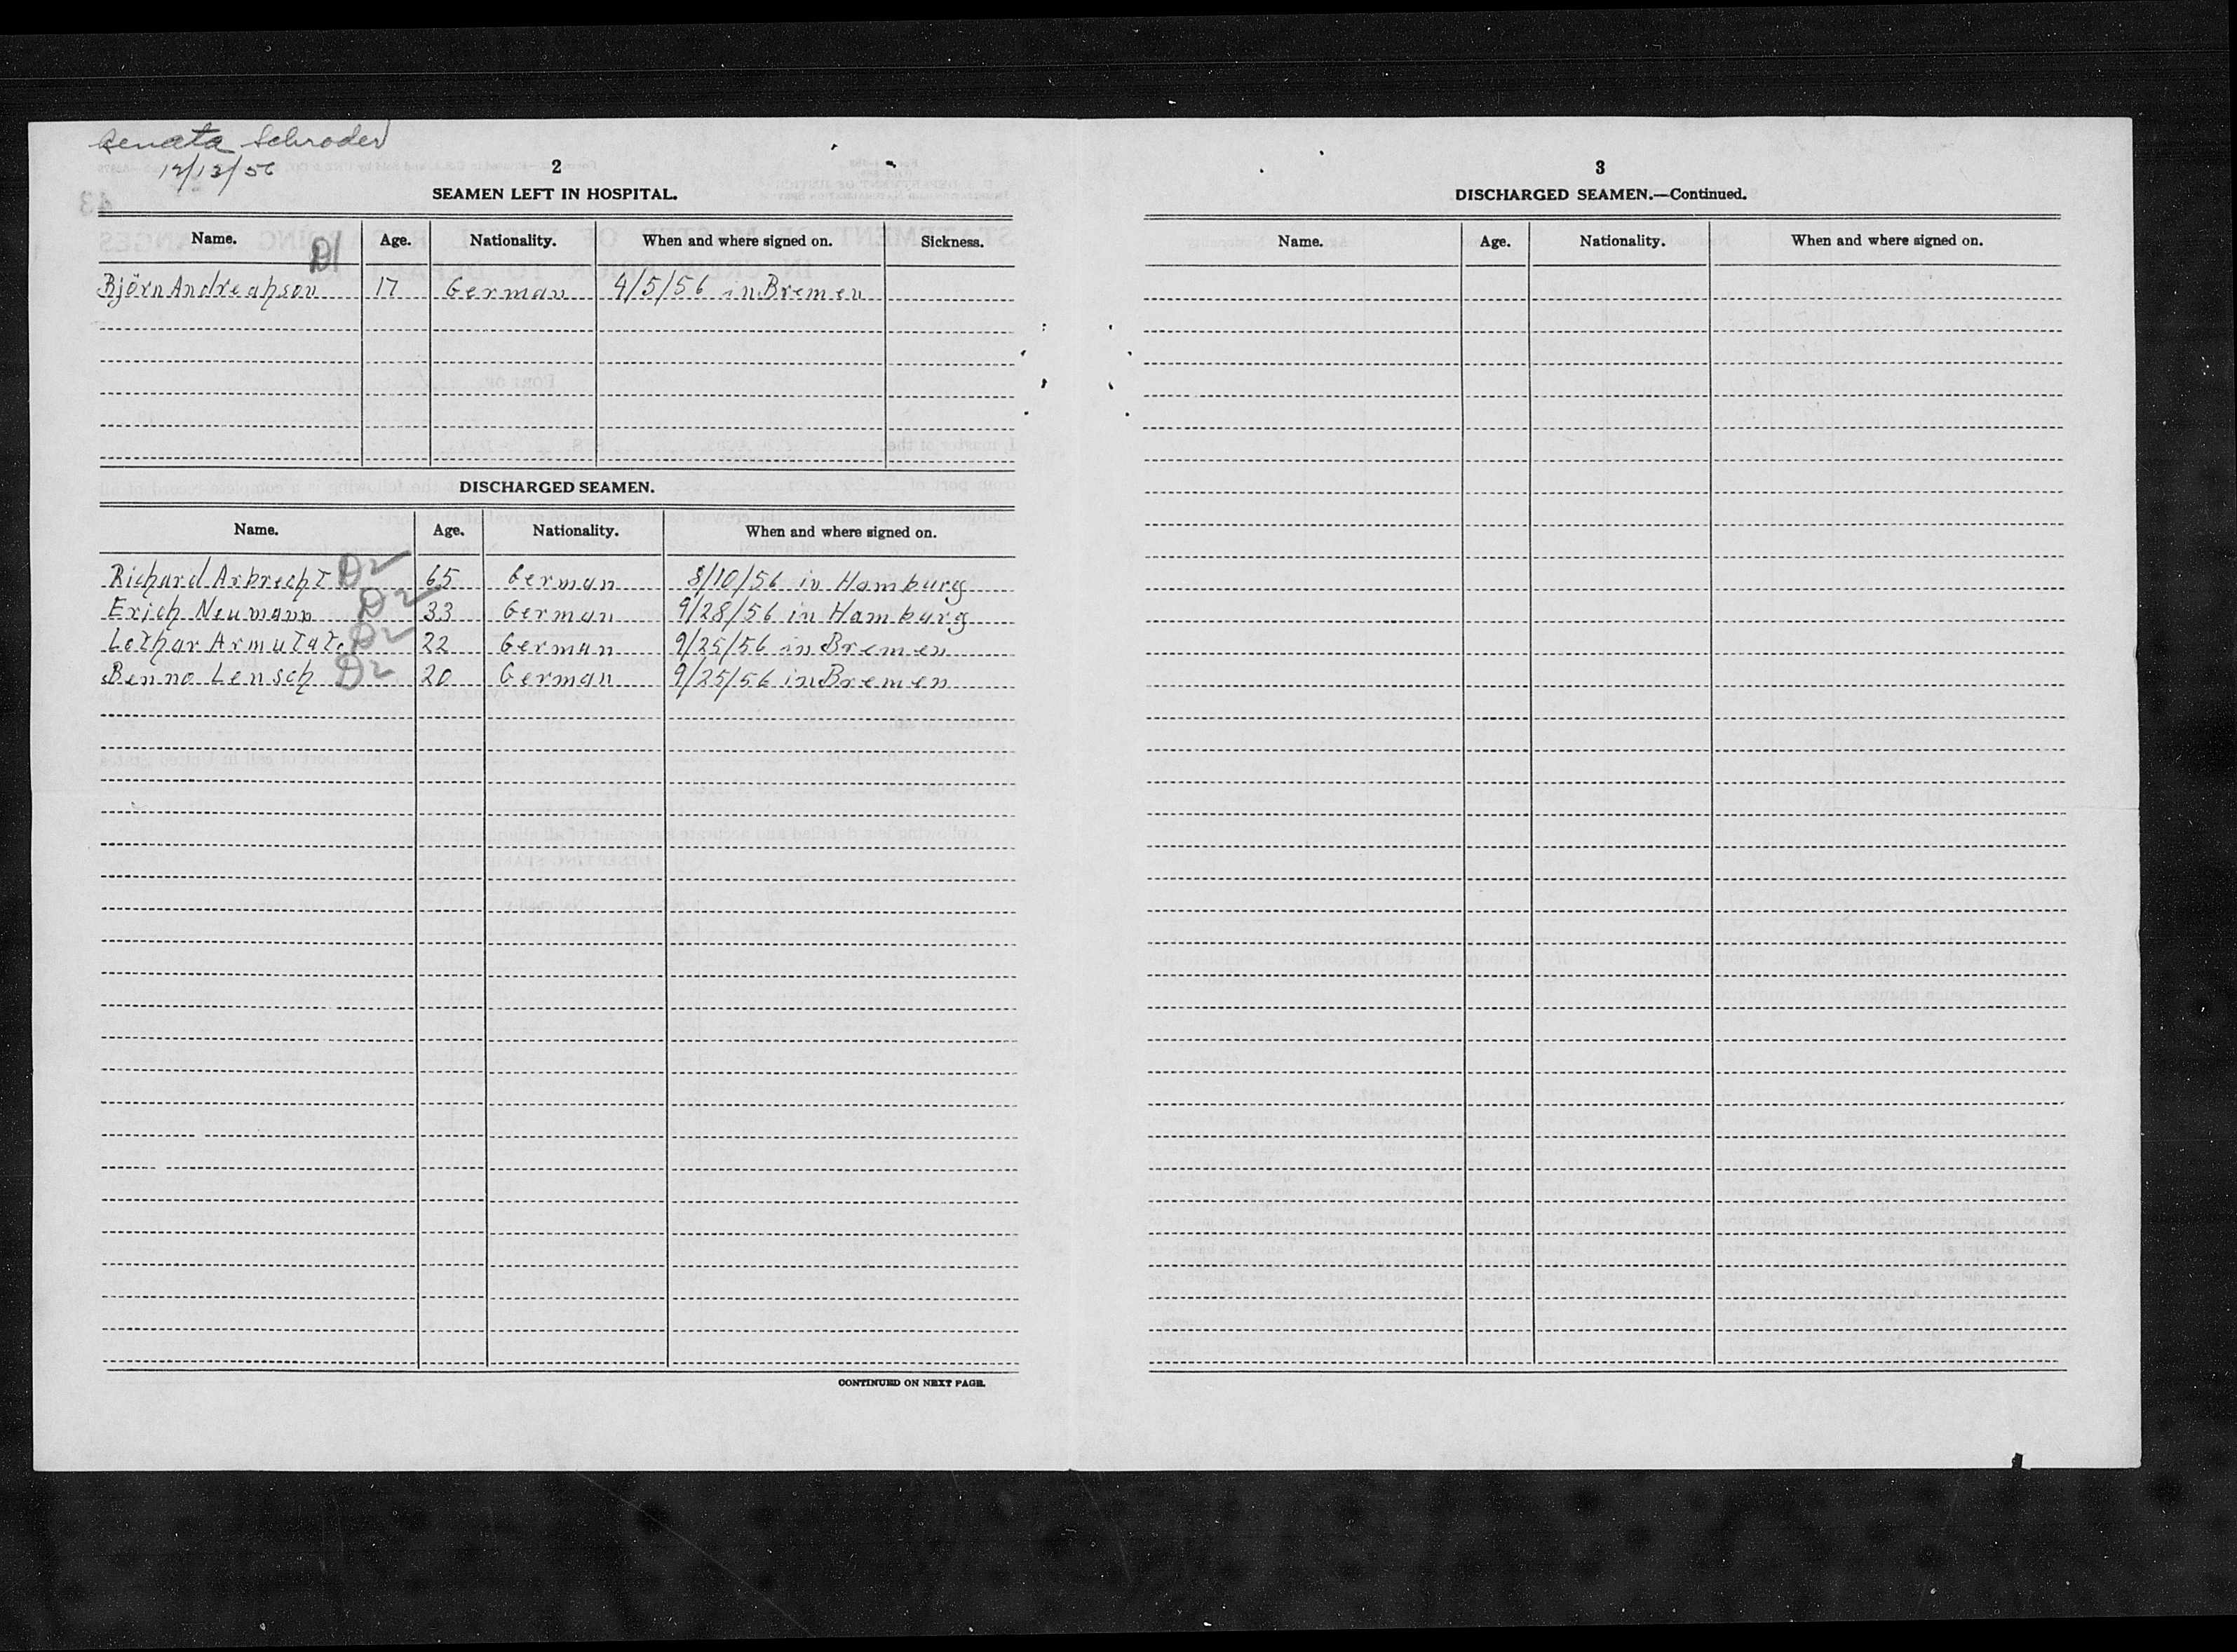 Renata Schroder
12/13/56
2
SEAMEN LEFT IN HOSPITAL.
Name. Age. Nationality. When and where signed on. Sickness.
D1
Björn Andreahson 17 German 4/5/56 in Bremen
DISCHARGED SEAMEN.
Name. Age. Nationality. When and where signed on.
Richard Arbrecht D2 65 German 8/10/56 in Hamburg
Erich Neumann D2 33 German 9/28/56 in Hamburg
Lothar Armutat D2 22 German 9/25/56 in Bremen
Benno Lensch D2 20 German 9/25/56 in Bremen
CONTINUED ON NEXT PAGE.
3
DISCHARGED SEAMEN.—Continued.
Name. Age. Nationality. When and where signed on.